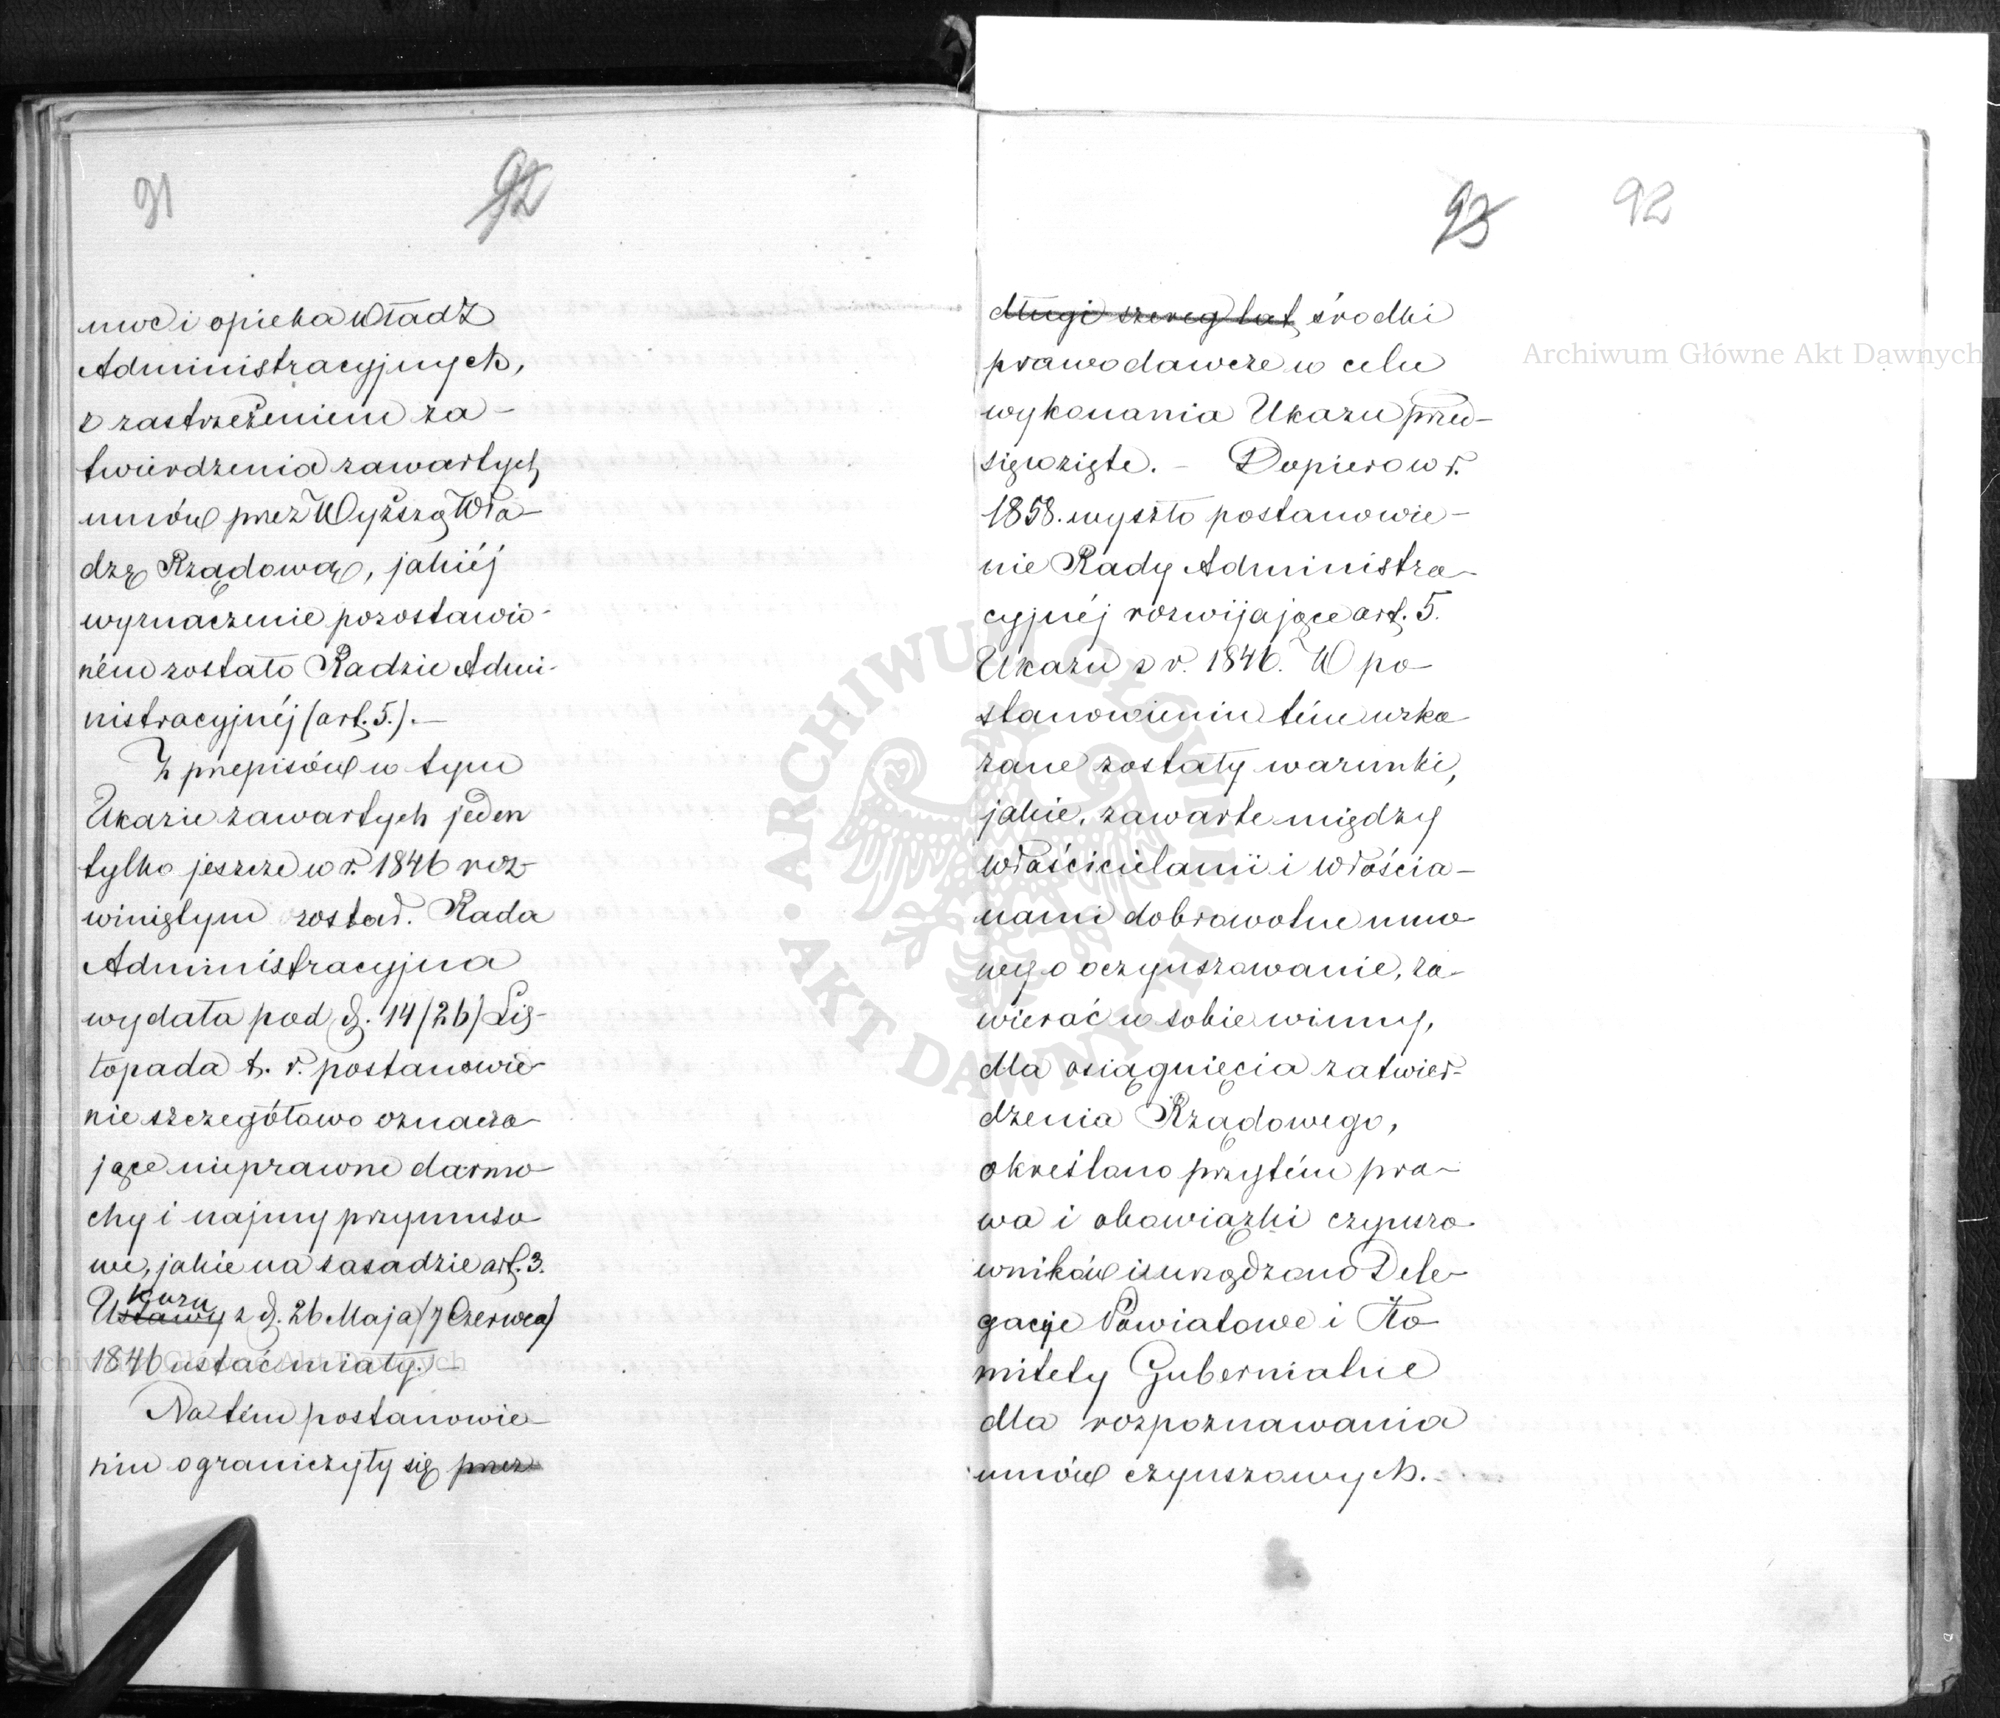 91 92
umoc i opieka władz
Administracyjnych,
z zastrzeżeniem za-
twierdzenia zawartych
umów przez Wyższą Wła-
dzę Rządową, jakiéj
wyznaczenie pozostawio-
ném zostało Radzie Admi-
nistracyjnéj (art. 5.). —
Z przepisów w tym
Ukazie zawartych jeden
tylko jeszcze w r. 1846 roz-
winiętym został. Rada
Administracyjna
wydała pod d. 14/26/ Lis-
topada t. r. postanowie-
nie szczegółowo oznacza-
jące nieprawne darmo-
chy i najmy przymuso-
we, jakie na zasadzie art. 3.
kazu
Ustawy z d. 26 Maja/7 Czerwca/
1846 ustać miały. —
Na tém postanowie-
niu ograniczyły się przez
93 92
długi szereg lat, środki
prawodawcze w celu
wykonania Ukazu przed-
sięwzięte. — Dopiero w r.
1858. wyszło postanowie-
nie Rady Administra-
cyjnéj rozwijające art. 5.
Ukazu z r. 1846. W po-
stanowieniu tém wska-
zane zostały warunki,
jakie, zawarte między
właścicielami i włościa-
nami dobrowolne umo-
wy o oczynszowanie, za-
wierać w sobie winny,
dla osiągnięcia zatwier-
dzenia Rządowego,
określano przytém pra-
wa i obowiązki czynszo-
wników i urządzono Dele-
gacye Powiatowe i Ko-
mitety Gubernialne
dla rozpoznawania
umów czynszowych. —
Archiwum Główne Akt Dawnych
Archiwum Główne Akt Dawnych
ARCHIWUM GŁÓWNE • AKT DAWNYCH •